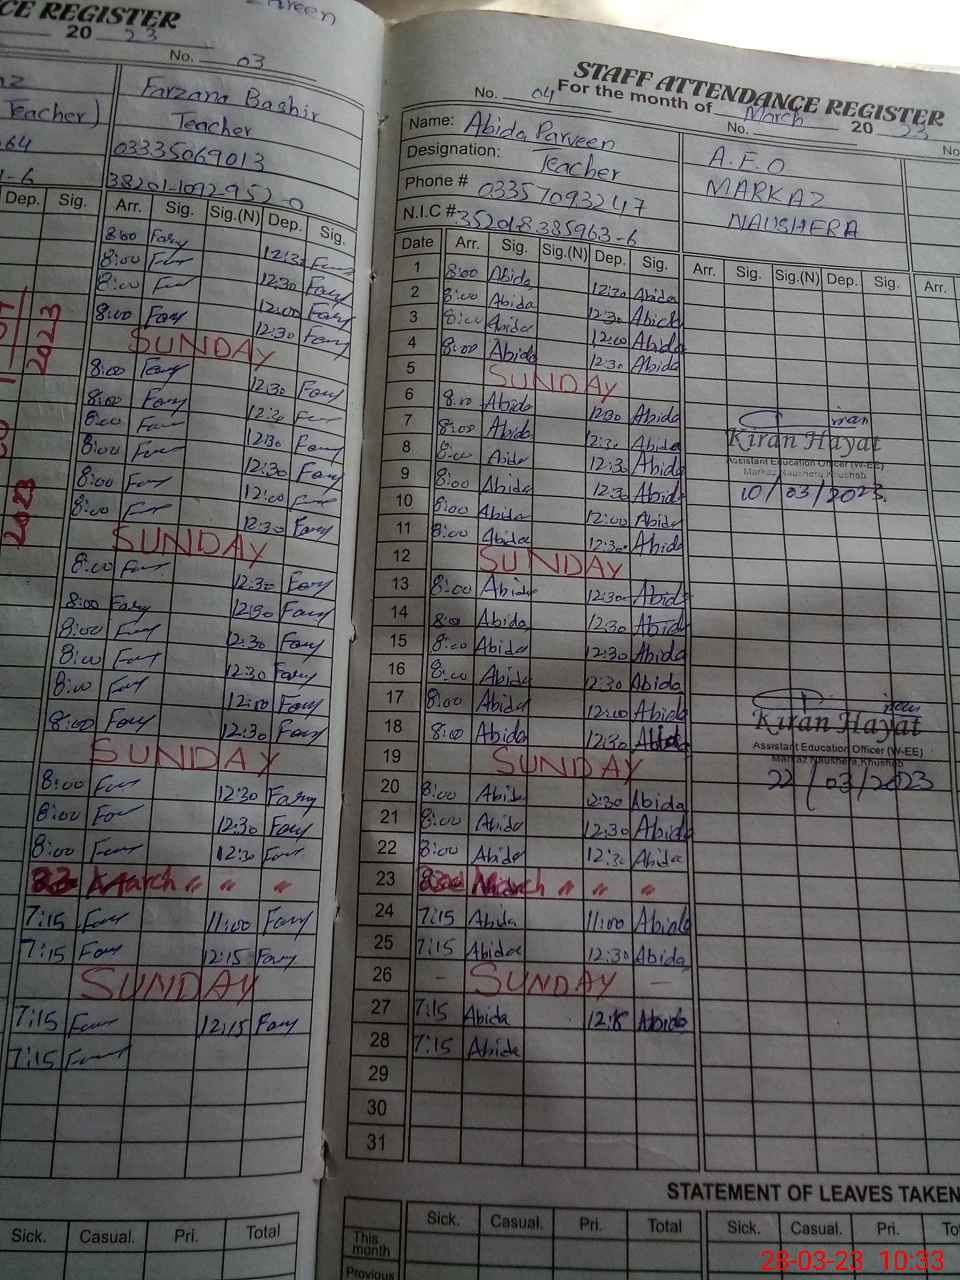 CE REGISTER
20 23
No. 03
Teacher)
Farzana Bashir
Teacher
03335069013
38201-1092952-0
Dep. Sig. Arr. Sig. Sig.(N) Dep. Sig.
8:00 Fary 12:30
8:00 12:30 Fary
8:00 12:00 Fary
8:00 Fary 12:30 Fary
SUNDAY
8:00 Fary 12:30 Fary
8:00 Fary 12:30
8:00 12:30 Fary
8:00 12:30 Fary
8:00 12:00
8:00 12:30 Fary
SUNDAY
8:00 12:30 Fary
8:00 Fary 12:30 Fary
8:00 12:30 Fary
8:00 12:30 Fary
8:00 12:00 Fary
8:00 Fary 12:30 Fary
SUNDAY
8:00 12:30 Fary
8:00 12:30 Fary
8:00 12:30
23 March " " "
7:15 11:00 Fary
7:15 12:15 Fary
SUNDAY
7:15 12:15 Fary
7:15
2023
2023
Sick. Casual. Pri. Total
STAFF ATTENDANCE REGISTER
No. 04 For the month of March 20 23
No.
Name: Abida Parveen
Designation: Teacher
Phone # 03357093247
N.I.C # 35201-8385963-6
A.E.O
MARKAZ
NAUSHERA
Date Arr. Sig. Sig.(N) Dep. Sig. Arr. Sig. Sig.(N) Dep. Sig. Arr.
1 8:00 Abida 12:30 Abida
2 8:00 Abida 12:30 Abida
3 8:00 Abida 12:00 Abida
4 8:00 Abida 12:30 Abida
5 SUNDAY
6 8:00 Abida 12:30 Abida
7 8:00 Abida 12:30 Abida
8 8:00 Abida 12:30 Abida
9 8:00 Abida 12:30 Abida
10 8:00 Abida 12:00 Abida
11 8:00 Abida 12:30 Abida
12 SUNDAY
13 8:00 Abida 12:30 Abida
14 8:00 Abida 12:30 Abida
15 8:00 Abida 12:30 Abida
16 8:00 Abida 12:30 Abida
17 8:00 Abida 12:00 Abida
18 8:00 Abida 12:30 Abida
19 SUNDAY
20 8:00 Abida 12:30 Abida
21 8:00 Abida 12:30 Abida
22 8:00 Abida 12:30 Abida
23 23rd March " " "
24 7:15 Abida 11:00 Abida
25 7:15 Abida 12:30 Abida
26 - SUNDAY -
27 7:15 Abida 12:15 Abida
28 7:15 Abida
29
30
31
Kiran Hayat
Assistant Education Officer (W-EE)
Markaz Naushera, Khushab
10/03/2023
Kiran Hayat
Assistant Education Officer (W-EE)
Markaz Naushera, Khushab
22/03/2023
STATEMENT OF LEAVES TAKEN
Sick. Casual. Pri. Total Sick. Casual. Pri.
This month
Previous
28-03-23 10:33